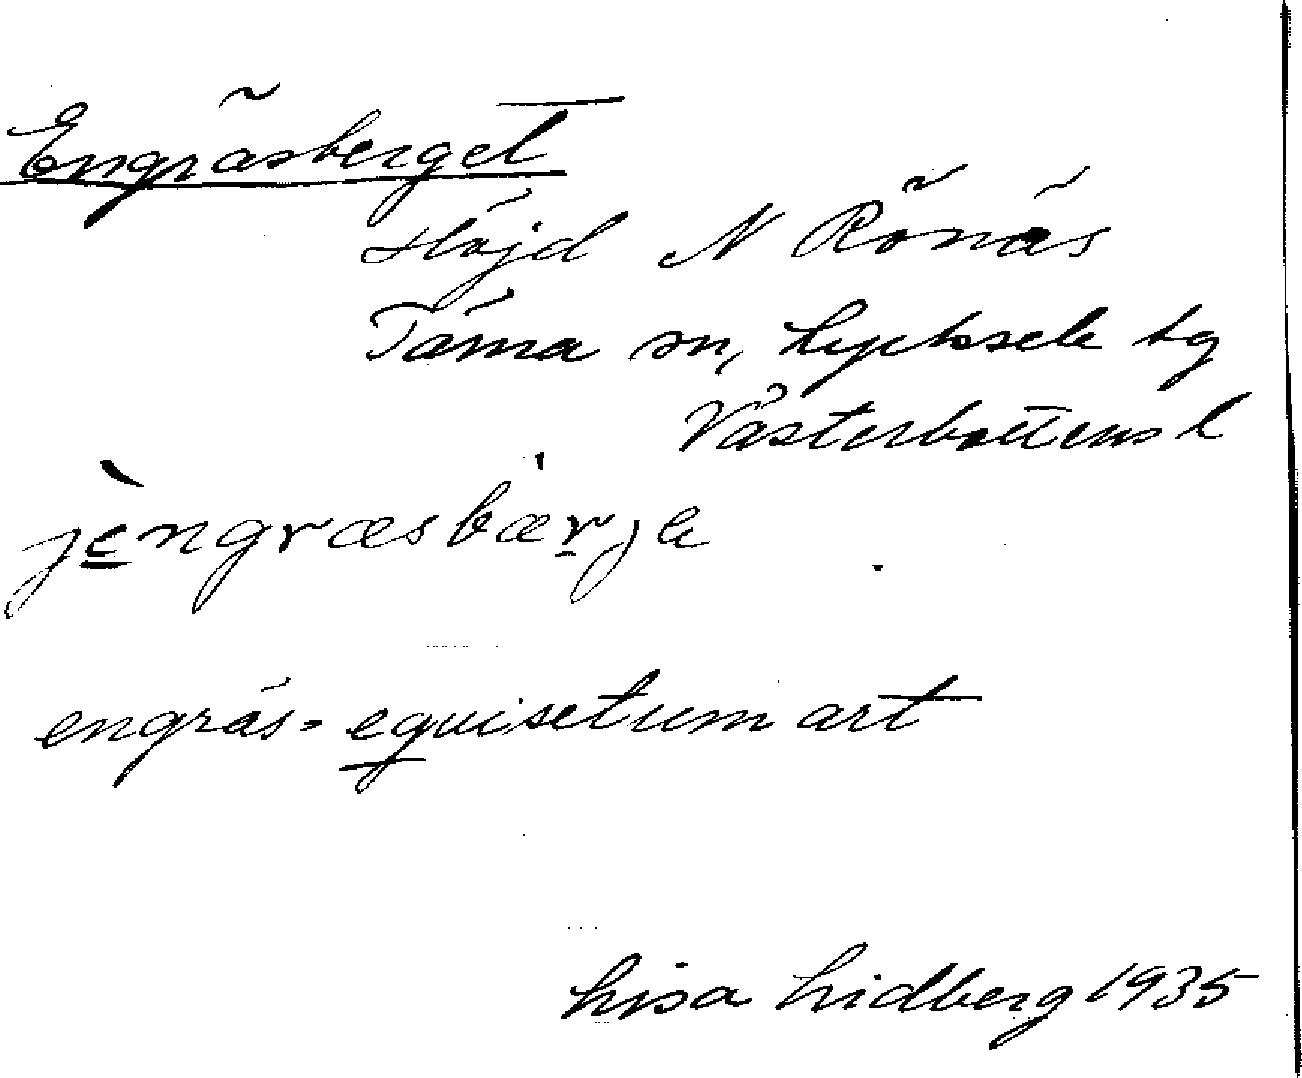 Engräsberget
Höjd N Rönäs
Tärna sn, Lycksele tg
Västerbottens l
jèngræsbærja
engräs = equisetum art
Lisa Lidberg 1935